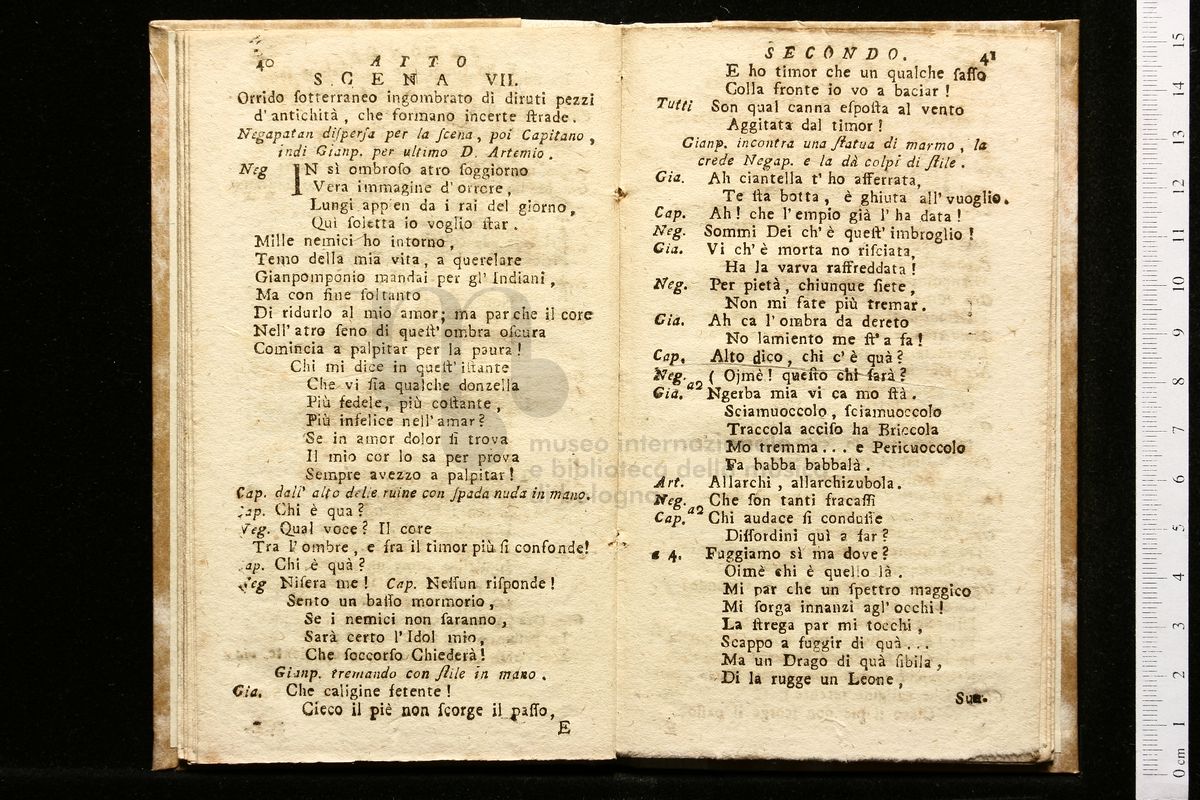 40
ATTO
SCENA VII.
Orrido ſotterraneo ingombrato di diruti pezzi
d'antichità, che formano incerte ſtrade.
Negapatan diſperſa per la ſcena, poi Capitano,
indi Gianp. per ultimo D. Artemio.
Neg IN sì ombroſo atro ſoggiorno
Vera immagine d'orrore,
Lungi appen da i rai del giorno,
Quì ſoletta io voglio ſtar.
Mille nemici ho intorno,
Temo della mia vita, a querelare
Gianpomponio mandai per gl' Indiani,
Ma con fine ſoltanto
Di ridurlo al mio amor; ma par che il core
Nell' atro ſeno di queſt' ombra oſcura
Comincia a palpitar per la paura!
Chi mi dice in queſt' iſtante
Che vi ſia qualche donzella
Più fedele, più coſtante,
Più infelice nell' amar?
Se in amor dolor ſi trova
Il mio cor lo sa per prova
Sempre avezzo a palpitar!
Cap. dall' alto delle ruine con ſpada nuda in mano.
Cap. Chi è qua?
Neg. Qual voce? Il core
Tra l' ombre, e fra il timor più ſi confonde!
Cap. Chi è quà?
Neg Niſera me! Cap. Neſſun riſponde!
Sento un baſſo mormorio,
Se i nemici non ſaranno,
Sarà certo l' Idol mio,
Che ſoccorſo Chiederà!
Gianp. tremando con ſtile in mano.
Gia. Che caligine fetente!
Cieco il piè non ſcorge il paſſo,
E
SECONDO. 41
E ho timor che un qualche ſaſſo
Colla fronte io vo a baciar!
Tutti Son qual canna eſpoſta al vento
Aggitata dal timor!
Gianp. incontra una ſtatua di marmo, la
crede Negap. e la dà colpi di ſtile.
Gia. Ah ciantella t' ho afferrata,
Te ſta botta, è ghiuta all' vuoglio.
Cap. Ah! che l' empio già l' ha data!
Neg. Sommi Dei ch' è queſt' imbroglio!
Gia. Vi ch' è morta no riſciata,
Ha la varva raffreddata!
Neg. Per pietà, chiunque ſiete,
Non mi fate più tremar.
Gia. Ah ca l' ombra da dereto
No lamiento me ſt' a fa!
Cap. Alto dico, chi c' è quà?
Neg. ( Ojmè! queſto chi ſarà?
Gia. a2 Ngerba mia vi ca mo ſtà.
Sciamuoccolo, ſciamuoccolo
Traccola acciſo ha Briccola
Mo tremma... e Pericuoccolo
Fa babba babbalà.
Art. Allarchi, allarchizubola.
Neg. Che ſon tanti fracaſſi
Cap. a2 Chi audace ſi conduſſe
Diſſordini quì a far?
a 4. Fuggiamo sì ma dove?
Oimè chi è quello là.
Mi par che un ſpettro maggico
Mi ſorga innanzi agl' occhi!
La ſtrega par mi tocchi,
Scappo a fuggir di quà...
Ma un Drago di quà ſibila,
Di la rugge un Leone,
Sua-
museo internazionale
e biblioteca della musica
di bologna
0 cm 1 2 3 4 5 6 7 8 9 10 11 12 13 14 15